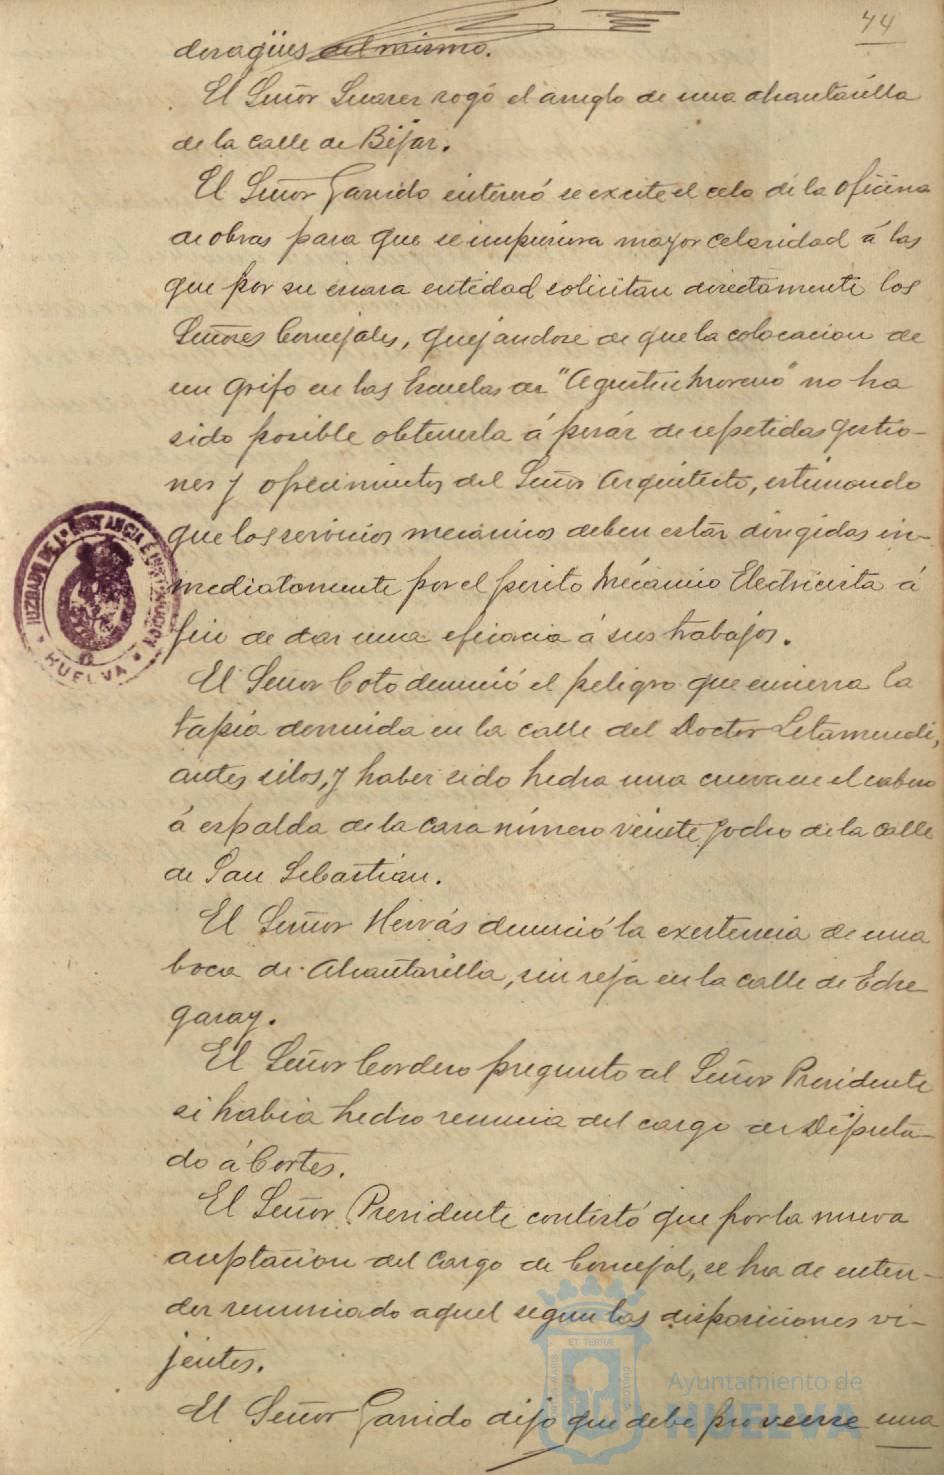 44
desagües del mismo.
El Señor Suarez rogó el arreglo de una alcantarilla
de la calle de Béjar.
El Señor Garrido interesó se excite el celo de la oficina
de obras para que se imprimiera mayor celeridad á las
que por su escasa entidad solicitan directamente los
Señores Concejales, quejandose de que la colocacion de
un grifo en las Escuelas de "Agustin Moreno" no ha
sido posible obtenerla á pesár de repetidas gestio-
nes y ofrecimientos del Señor Arquitecto, estimando
que los servicios mecanicos deben estár dirigidos in-
mediatamente por el perito Mécanico Electricista á
fin de dar una eficacia á sus trabajos.
El Señor Coto denunció el peligro que encierra la
tapia derruida en la calle del Doctor Letamendi,
antes silos, y haber sido hecha una cueva en el cabezo
á espalda de la casa número veinte y ocho de la calle
de San Sebastián.
El Señor Hervás denunció la existencia de una
boca de Alcantarilla, sin reja en la calle de Eche-
garay.
El Señor Cordero preguntó al Señor Presidente
si habia hecho renuncia del cargo de Diputa-
do á Cortes.
El Señor Presidente contestó que por la nueva
aceptacion del cargo de Concejal, se ha de enten-
der renunciado aquel segun las disposiciones vi-
jentes.
El Señor Garrido dijo que debe proveerse una
JUZGADO DE 1ª INSTANCIA É INSTRUCCION
HUELVA
Ayuntamiento de
HUELVA